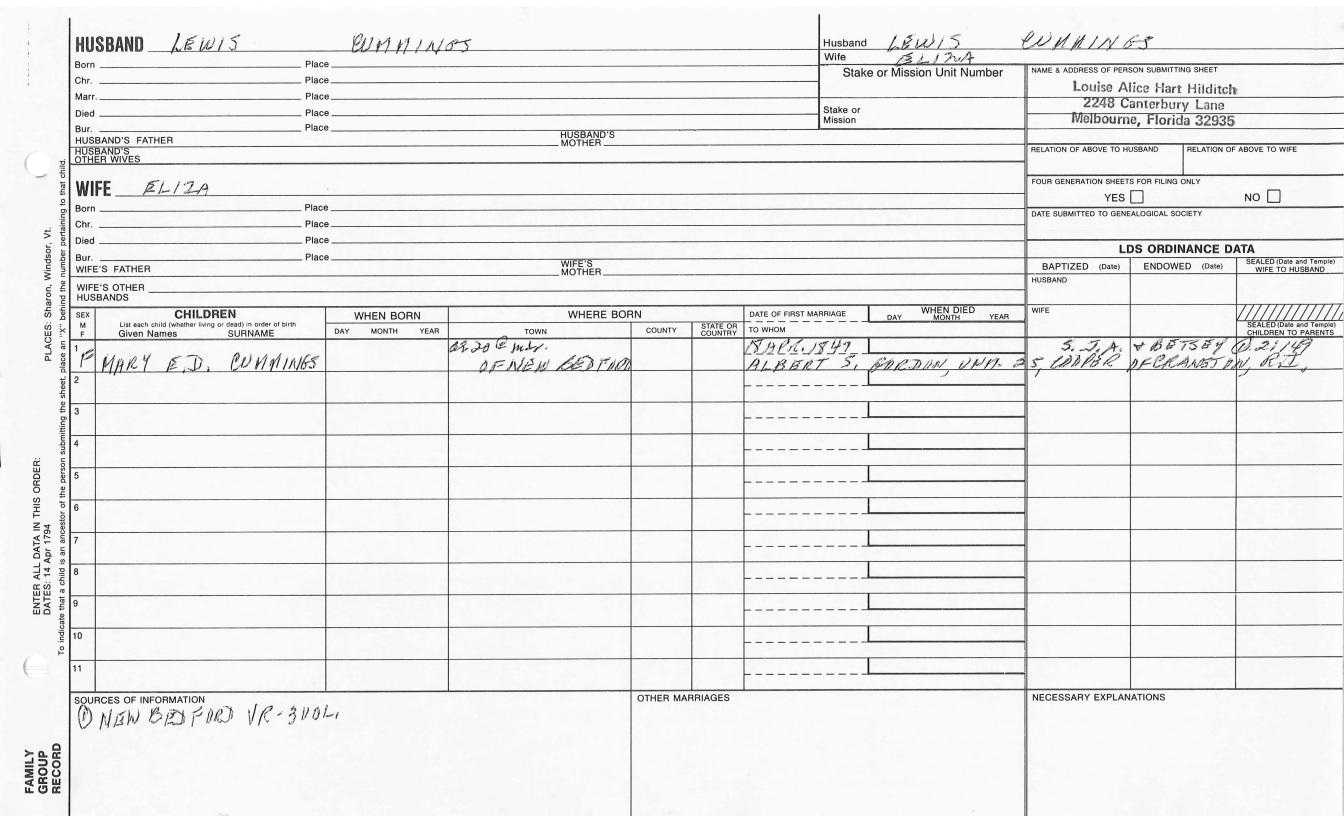 HUSBAND LEWIS CUMMINGS
Born Place
Chr. Place
Marr. Place
Died Place
Bur. Place
HUSBAND'S FATHER HUSBAND'S MOTHER
HUSBAND'S OTHER WIVES
WIFE ELIZA
Born Place
Chr. Place
Died Place
Bur. Place
WIFE'S FATHER WIFE'S MOTHER
WIFE'S OTHER HUSBANDS
Husband LEWIS CUMMINGS
Wife ELIZA
Stake or Mission Unit Number
Stake or Mission
NAME & ADDRESS OF PERSON SUBMITTING SHEET
Louise Alice Hart Hilditch
2248 Canterbury Lane
Melbourne, Florida 32935
RELATION OF ABOVE TO HUSBAND RELATION OF ABOVE TO WIFE
FOUR GENERATION SHEETS FOR FILING ONLY
YES NO
DATE SUBMITTED TO GENEALOGICAL SOCIETY
LDS ORDINANCE DATA
BAPTIZED (Date) ENDOWED (Date) SEALED (Date and Temple) WIFE TO HUSBAND
HUSBAND
WIFE
SEALED (Date and Temple) CHILDREN TO PARENTS
SEX M F
CHILDREN
List each child (whether living or dead) in order of birth
Given Names SURNAME
WHEN BORN
DAY MONTH YEAR
WHERE BORN
TOWN COUNTY STATE OR COUNTRY
DATE OF FIRST MARRIAGE
TO WHOM
WHEN DIED
DAY MONTH YEAR
1 20 @ mar. 18 APR. 1847 S. J.A. & BETSEY ① 2:149
F MARY E.D. CUMMINGS OF NEW BEDFORD ALBERT S. GORDON, UNM. 25, COOPER OF CRANSTON, R.I.
2
3
4
5
6
7
8
9
10
11
SOURCES OF INFORMATION
① NEW BEDFORD VR-3VOL.
OTHER MARRIAGES
NECESSARY EXPLANATIONS
PLACES: Sharon, Windsor, Vt.
ENTER ALL DATA IN THIS ORDER:
DATES: 14 Apr 1794
To indicate that a child is an ancestor of the person submitting the sheet, place an "X" behind the number pertaining to that child.
FAMILY
GROUP
RECORD